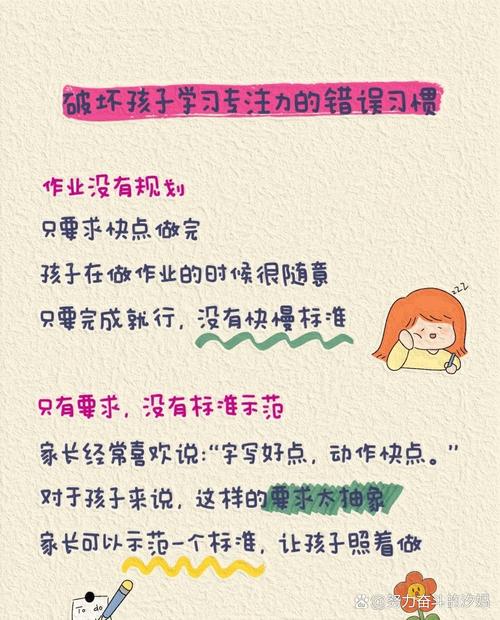 破坏孩子学习专注力的错误习惯
作业没有规划
只要求快点做完
孩子在做作业的时候很随意
只要完成就行，没有快慢标准
zzZ
只有要求，没有标准示范
家长经常喜欢说:“字写好点，动作快点。”
对于孩子来说，这样的要求太抽象
家长可以示范一个标准，让孩子照着做
To do
@努力奋斗的汐媚